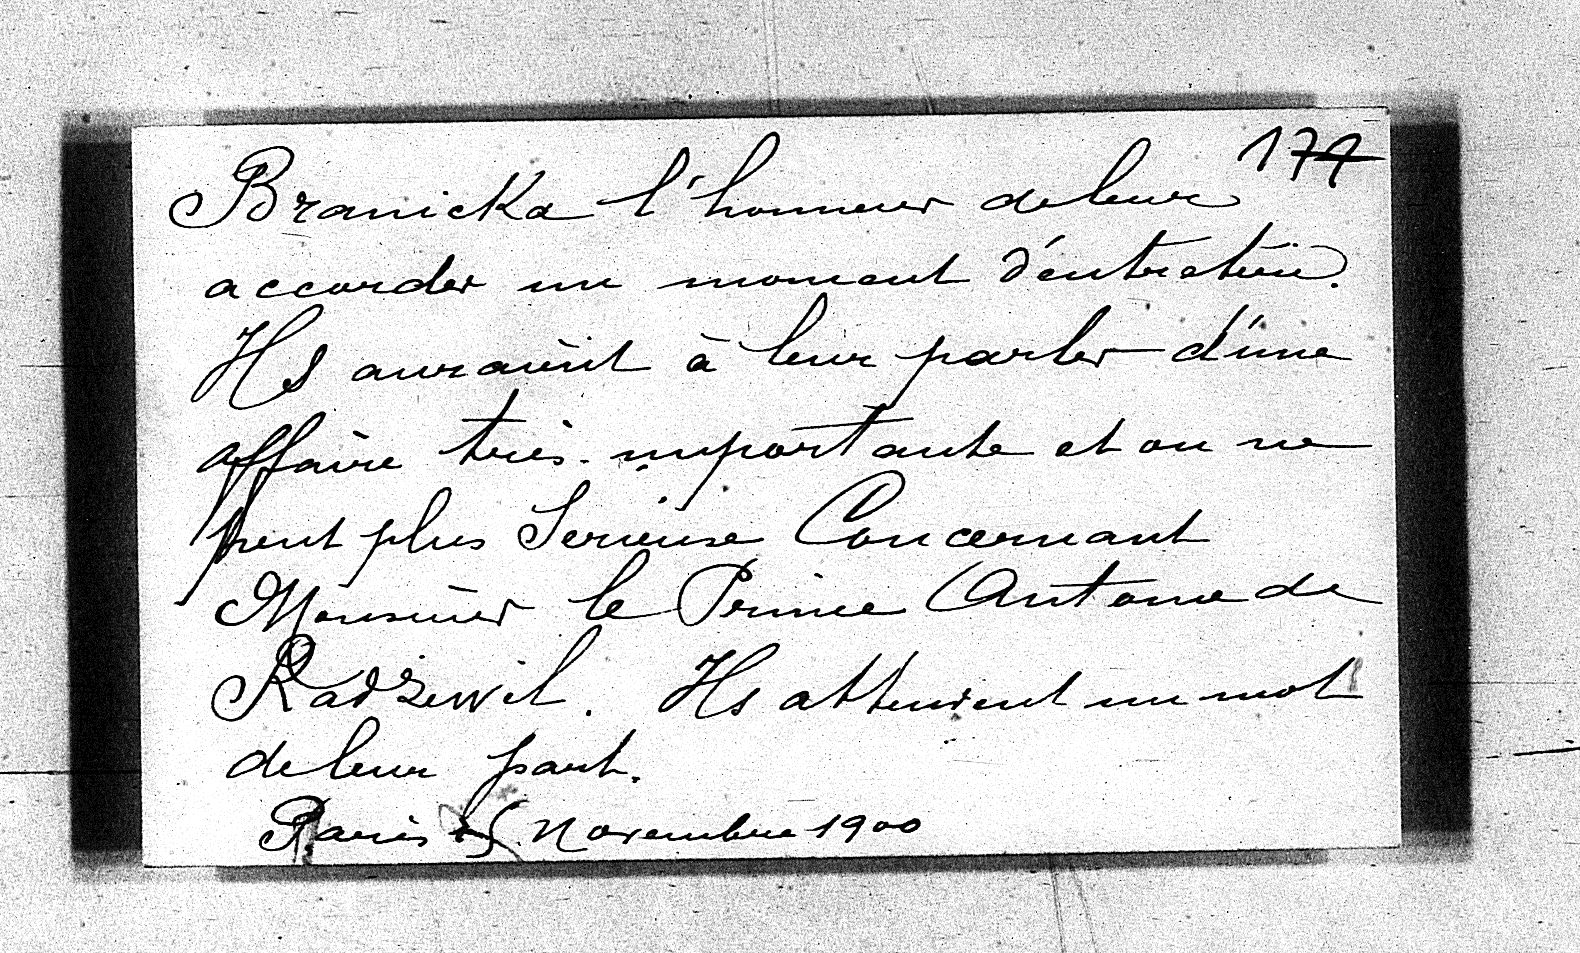 174
Branicka l'honneur de leur
accorder un moment d'entretien.
Ils auraient à leur parler d'une
affaire très importante et on ne
peut plus Serieuse Concernant
Monsieur le Prince Antoine de
Radzewil. Ils attendent un mot
de leur part.
Paris 5 Novembre 1900